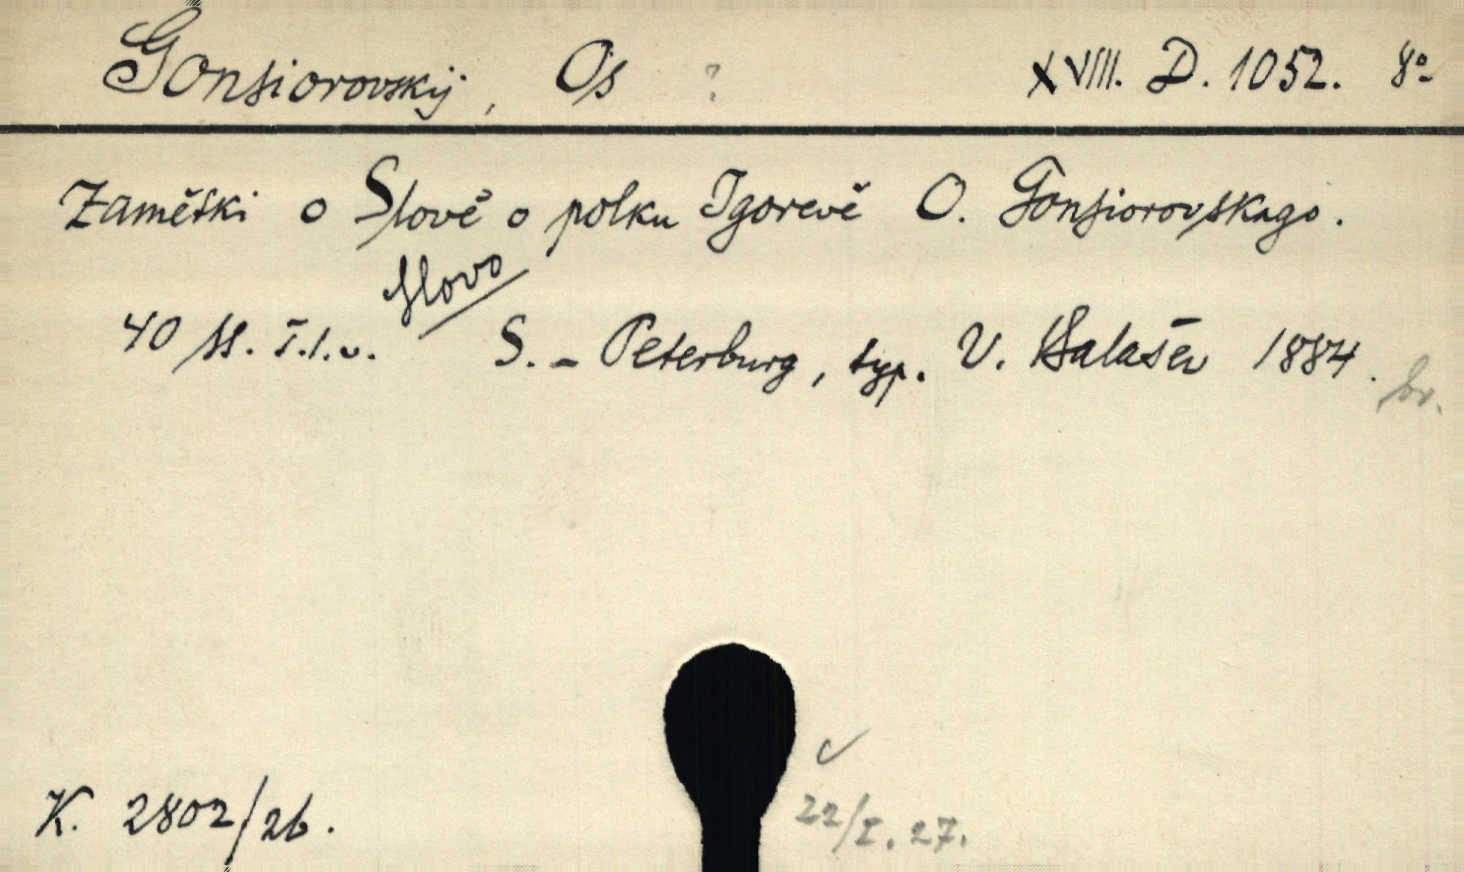 Gonsiorovskij, Os ? XVIII. D. 1052. 8º
Zamětki o Slově o polku Igorevě O. Gonsiorovskago.
Slovo
40 ss. T.l.v. S. - Peterburg, typ. V. Balašev 1884. br.
K. 2802/26.
22/I. 27.